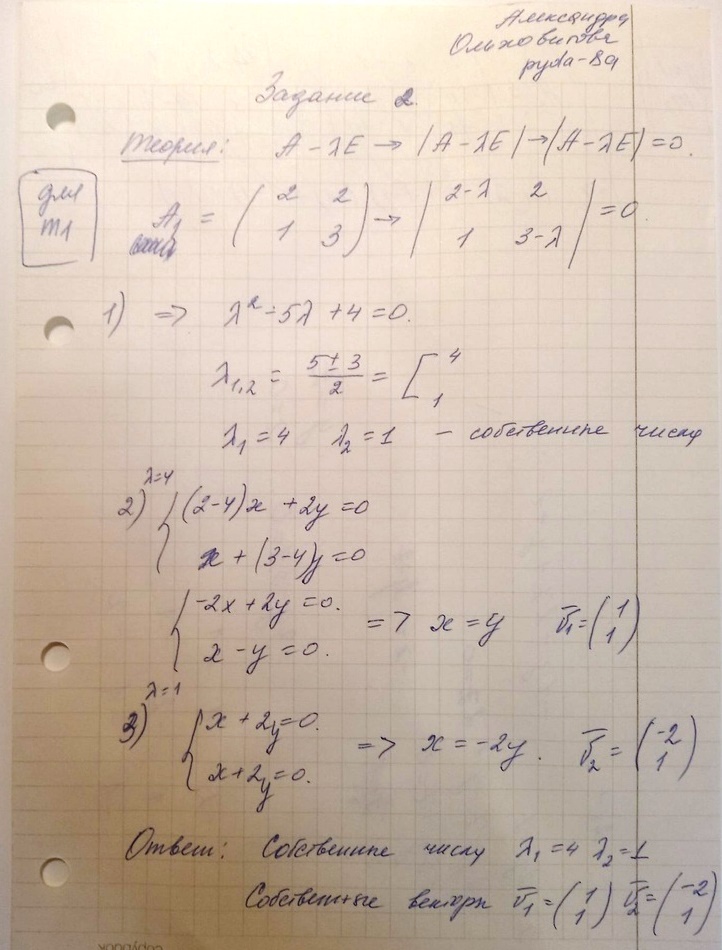 Александра
Ольховикова
pyda-89
Задание 2.
Теория: A - λE → |A - λE| → |A - λE| = 0.
для
m1
A₁ = ( 2 2 ) → | 2-λ 2 | = 0.
( 1 3 ) | 1 3-λ |
1) => λ² - 5λ + 4 = 0.
λ₁,₂ = (5 ± 3)/2 = [ 4
1
λ₁ = 4 λ₂ = 1 - собственные числа
λ=4
2) { (2-4)x + 2y = 0
x + (3-4)y = 0
{ -2x + 2y = 0. => x = y v̄₁ = ( 1
x - y = 0. 1 )
λ=1
3) { x + 2y = 0. => x = -2y. v̄₂ = ( -2
x + 2y = 0. 1 )
Ответ: Собственные числа λ₁ = 4 λ₂ = 1
Собственные вектора v̄₁ = ( 1 1 ) v̄₂ = ( -2 1 )
copybook